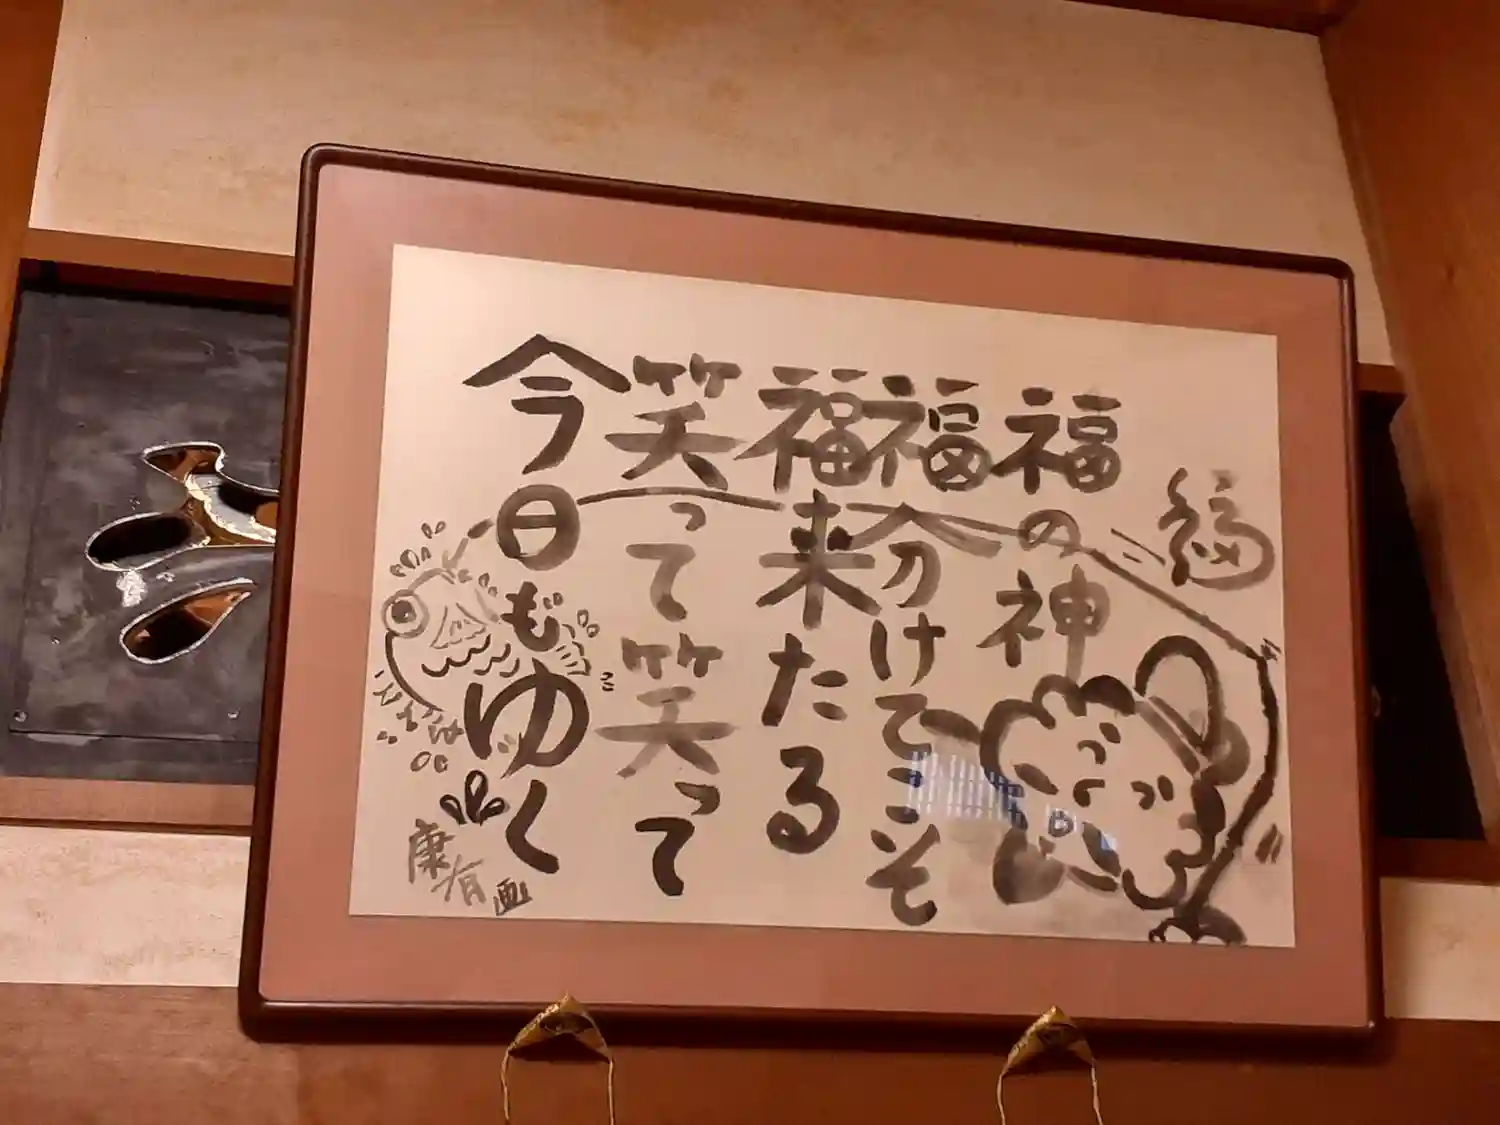 福
福の神
福分けてこそ
福来たる
笑って笑って
今日もゆく
康有画